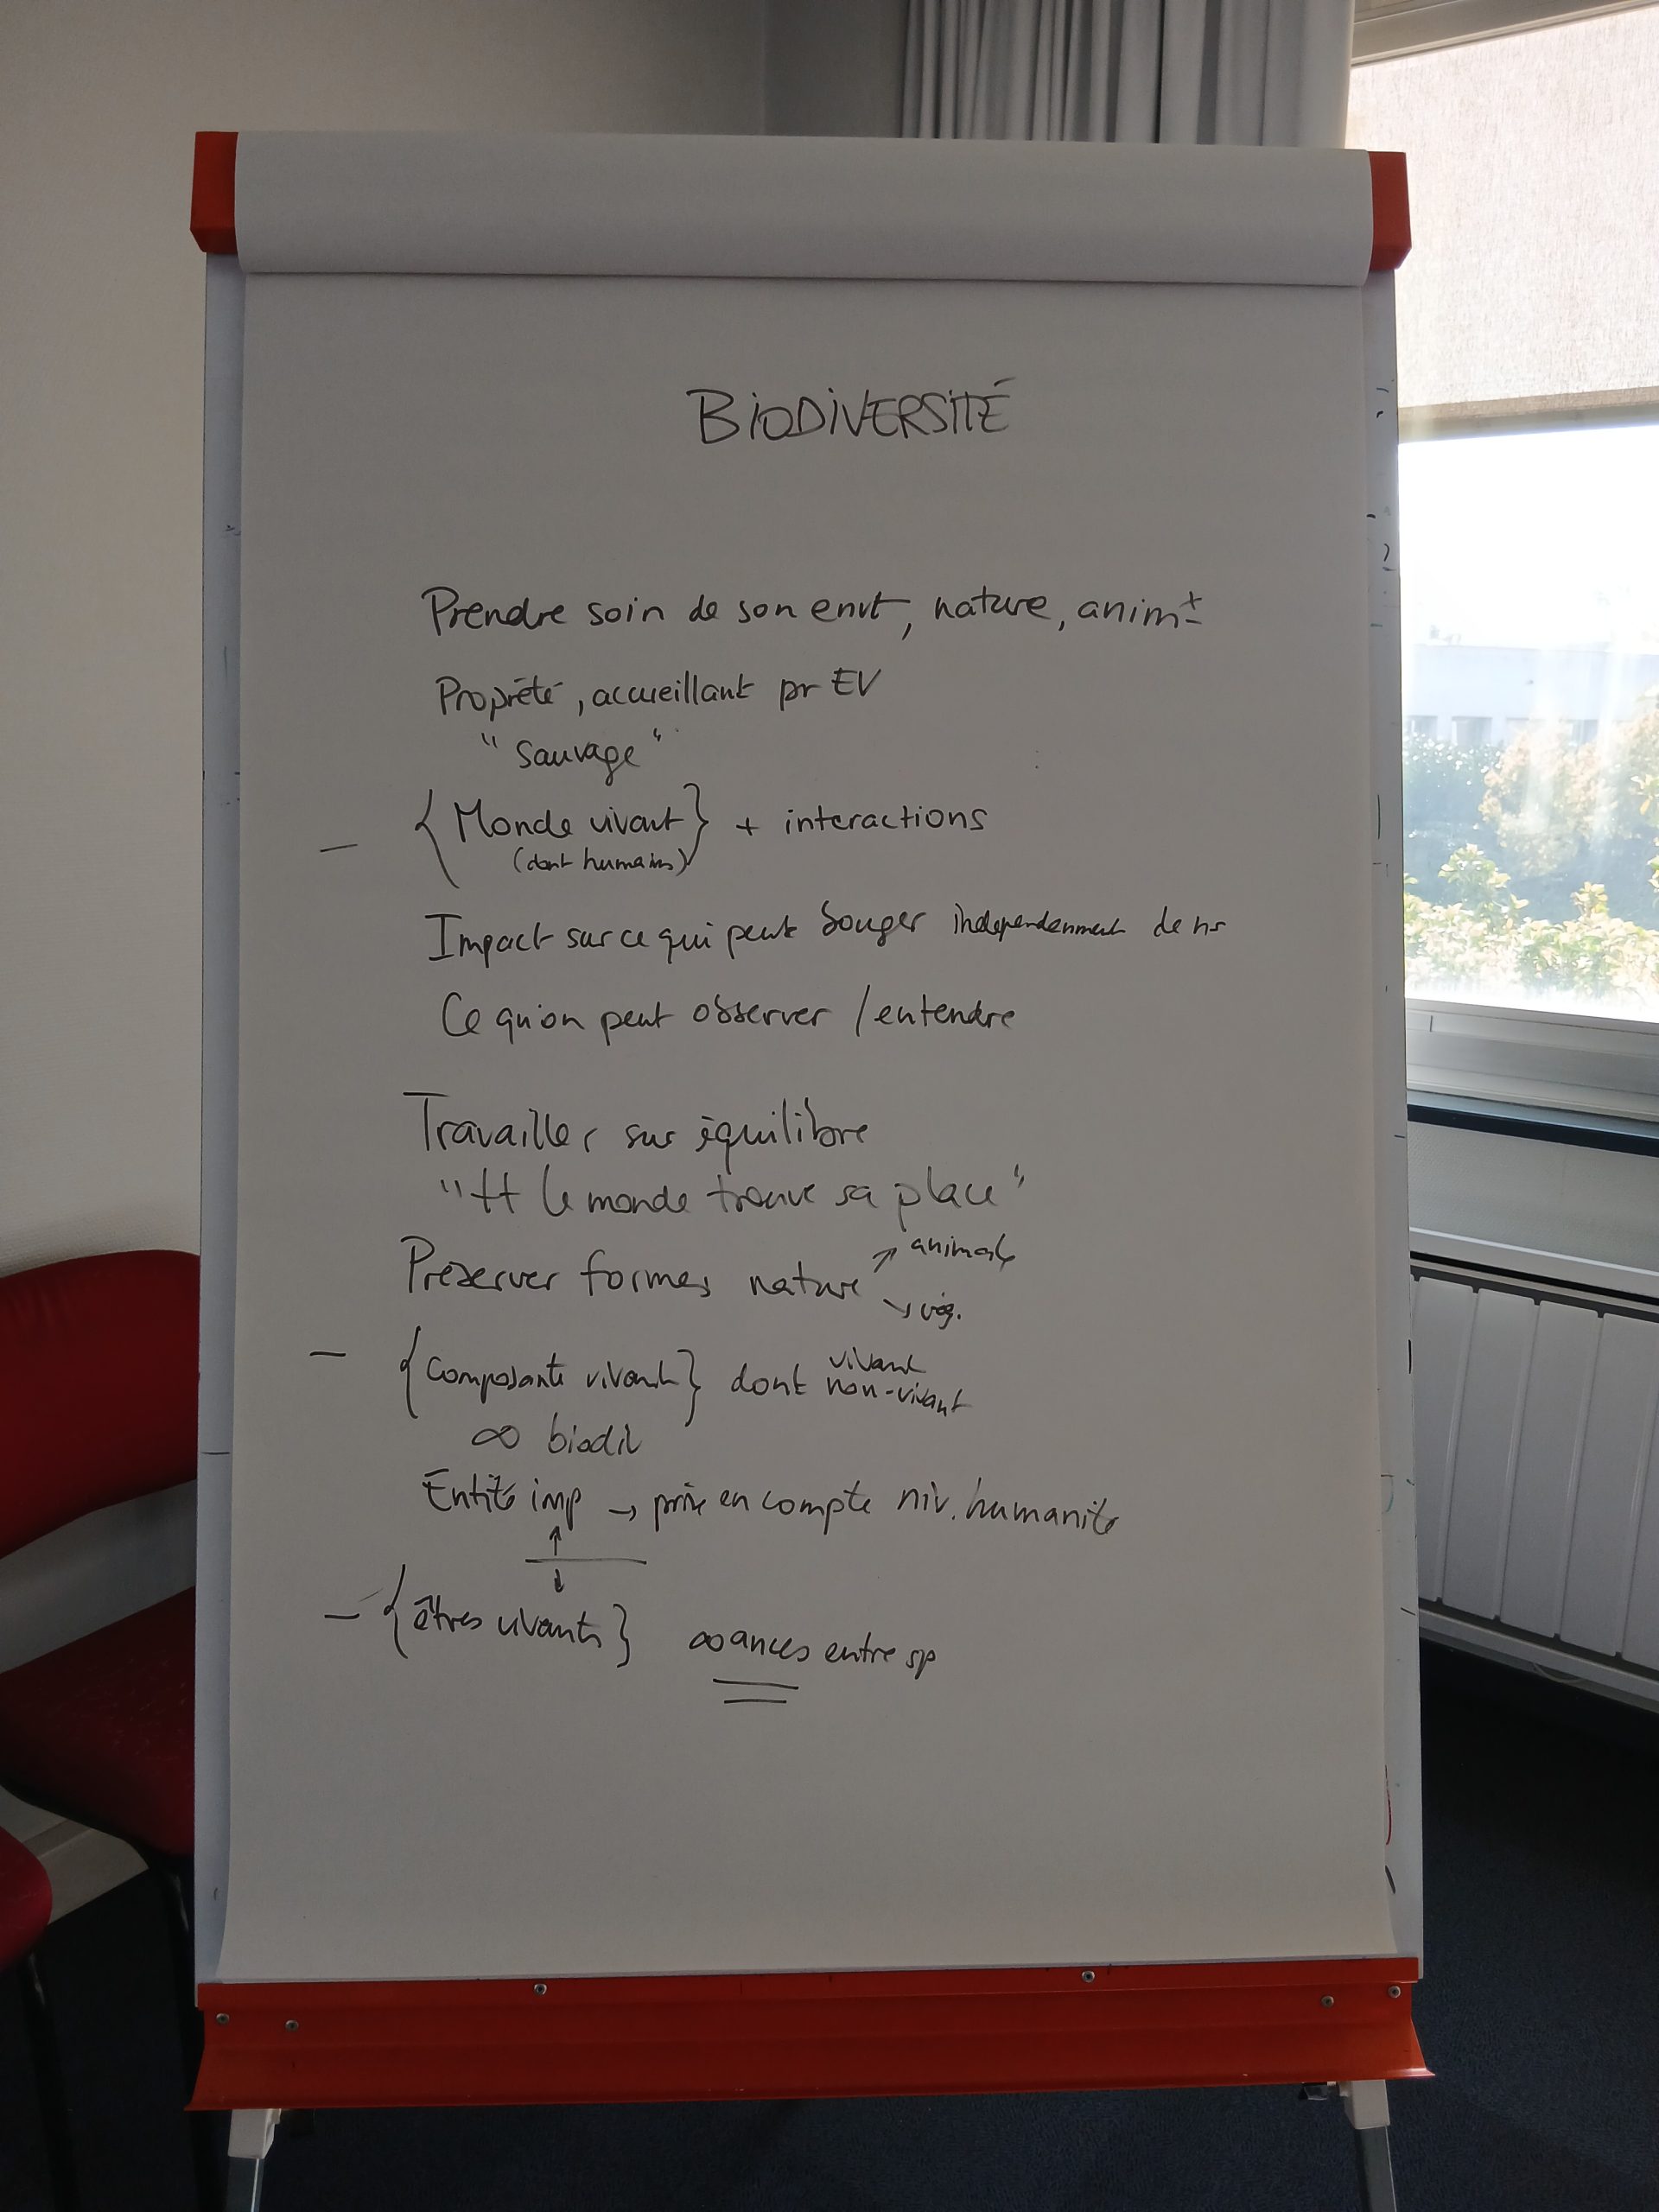 BIODIVERSITÉ
Prendre soin de son envt, nature, anim±
Propreté, accueillant pr EV
"sauvage"
— {Monde vivant} + interactions
(dont humains)
Impact sur ce qui peut bouger independemment de ns
Ce qu'on peut observer / entendre
Travailler sur équilibre
"tt le monde trouve sa place"
Préserver formes nature ↗ animale
↘ vég.
— {Composante vivant} dont vivant
non-vivant
∞ biodiv
Entité imp → prise en compte niv. humanité
↑
↓
— {êtres vivants} ∞ances entre sp